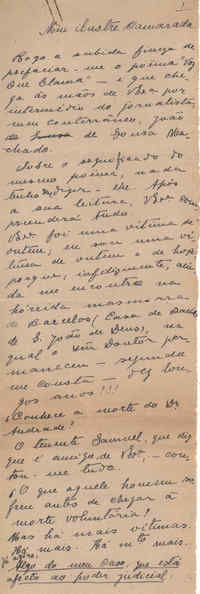 Meu ilustre Camarada
Rogo a subida fineza de
prefaciar-me o poema "Voz
que Clama" - e que che-
ga às mãos de V. por
intermédio do jornalista,
meu conterrâneo, João
de Sousa Ma-
chado.
Sobre o significado do
mesmo poema, nada
tenho a dizer-lhe. Após
a sua leitura, V. com-
preenderá tudo.
V. foi uma vítima de
ontem; eu sou uma ví-
tima de ontem e de hoje
porque, infelizmente, ain-
da me encontro na
hórrida masmorra
de Barcelos (Casa de Saúde
de S. João de Deus), na
qual o Sr. Doutor per-
maneceu - segundo
me consta - dez lon-
gos anos!!!
¿Conhece a morte do Dr.
Andrade?
O tenente Samuel, que diz
que é amigo de V., - con-
tou-me tudo.
¡O que aquele homem so-
freu antes de chegar à
morte voluntária!
Mas há mais vítimas.
Há mais. Há mto mais.
Algo do meu caso, que está
afecto ao poder judicial.